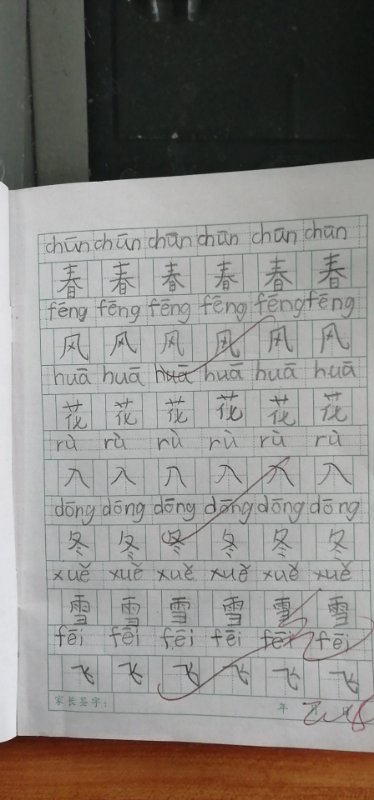 chūn chūn chūn chūn chūn chūn
春 春 春 春 春 春
fēng fēng fēng fēng fēng fēng
风 风 风 风 风 风
huā huā huā huā huā huā
花 花 花 花 花 花
rù rù rù rù rù rù
入 入 入 入 入 入
dōng dōng dōng dōng dōng dōng
冬 冬 冬 冬 冬 冬
xuě xuě xuě xuě xuě xuě
雪 雪 雪 雪 雪 雪
fēi fēi fēi fēi fēi fēi
飞 飞 飞 飞 飞 飞
家长签字： 年